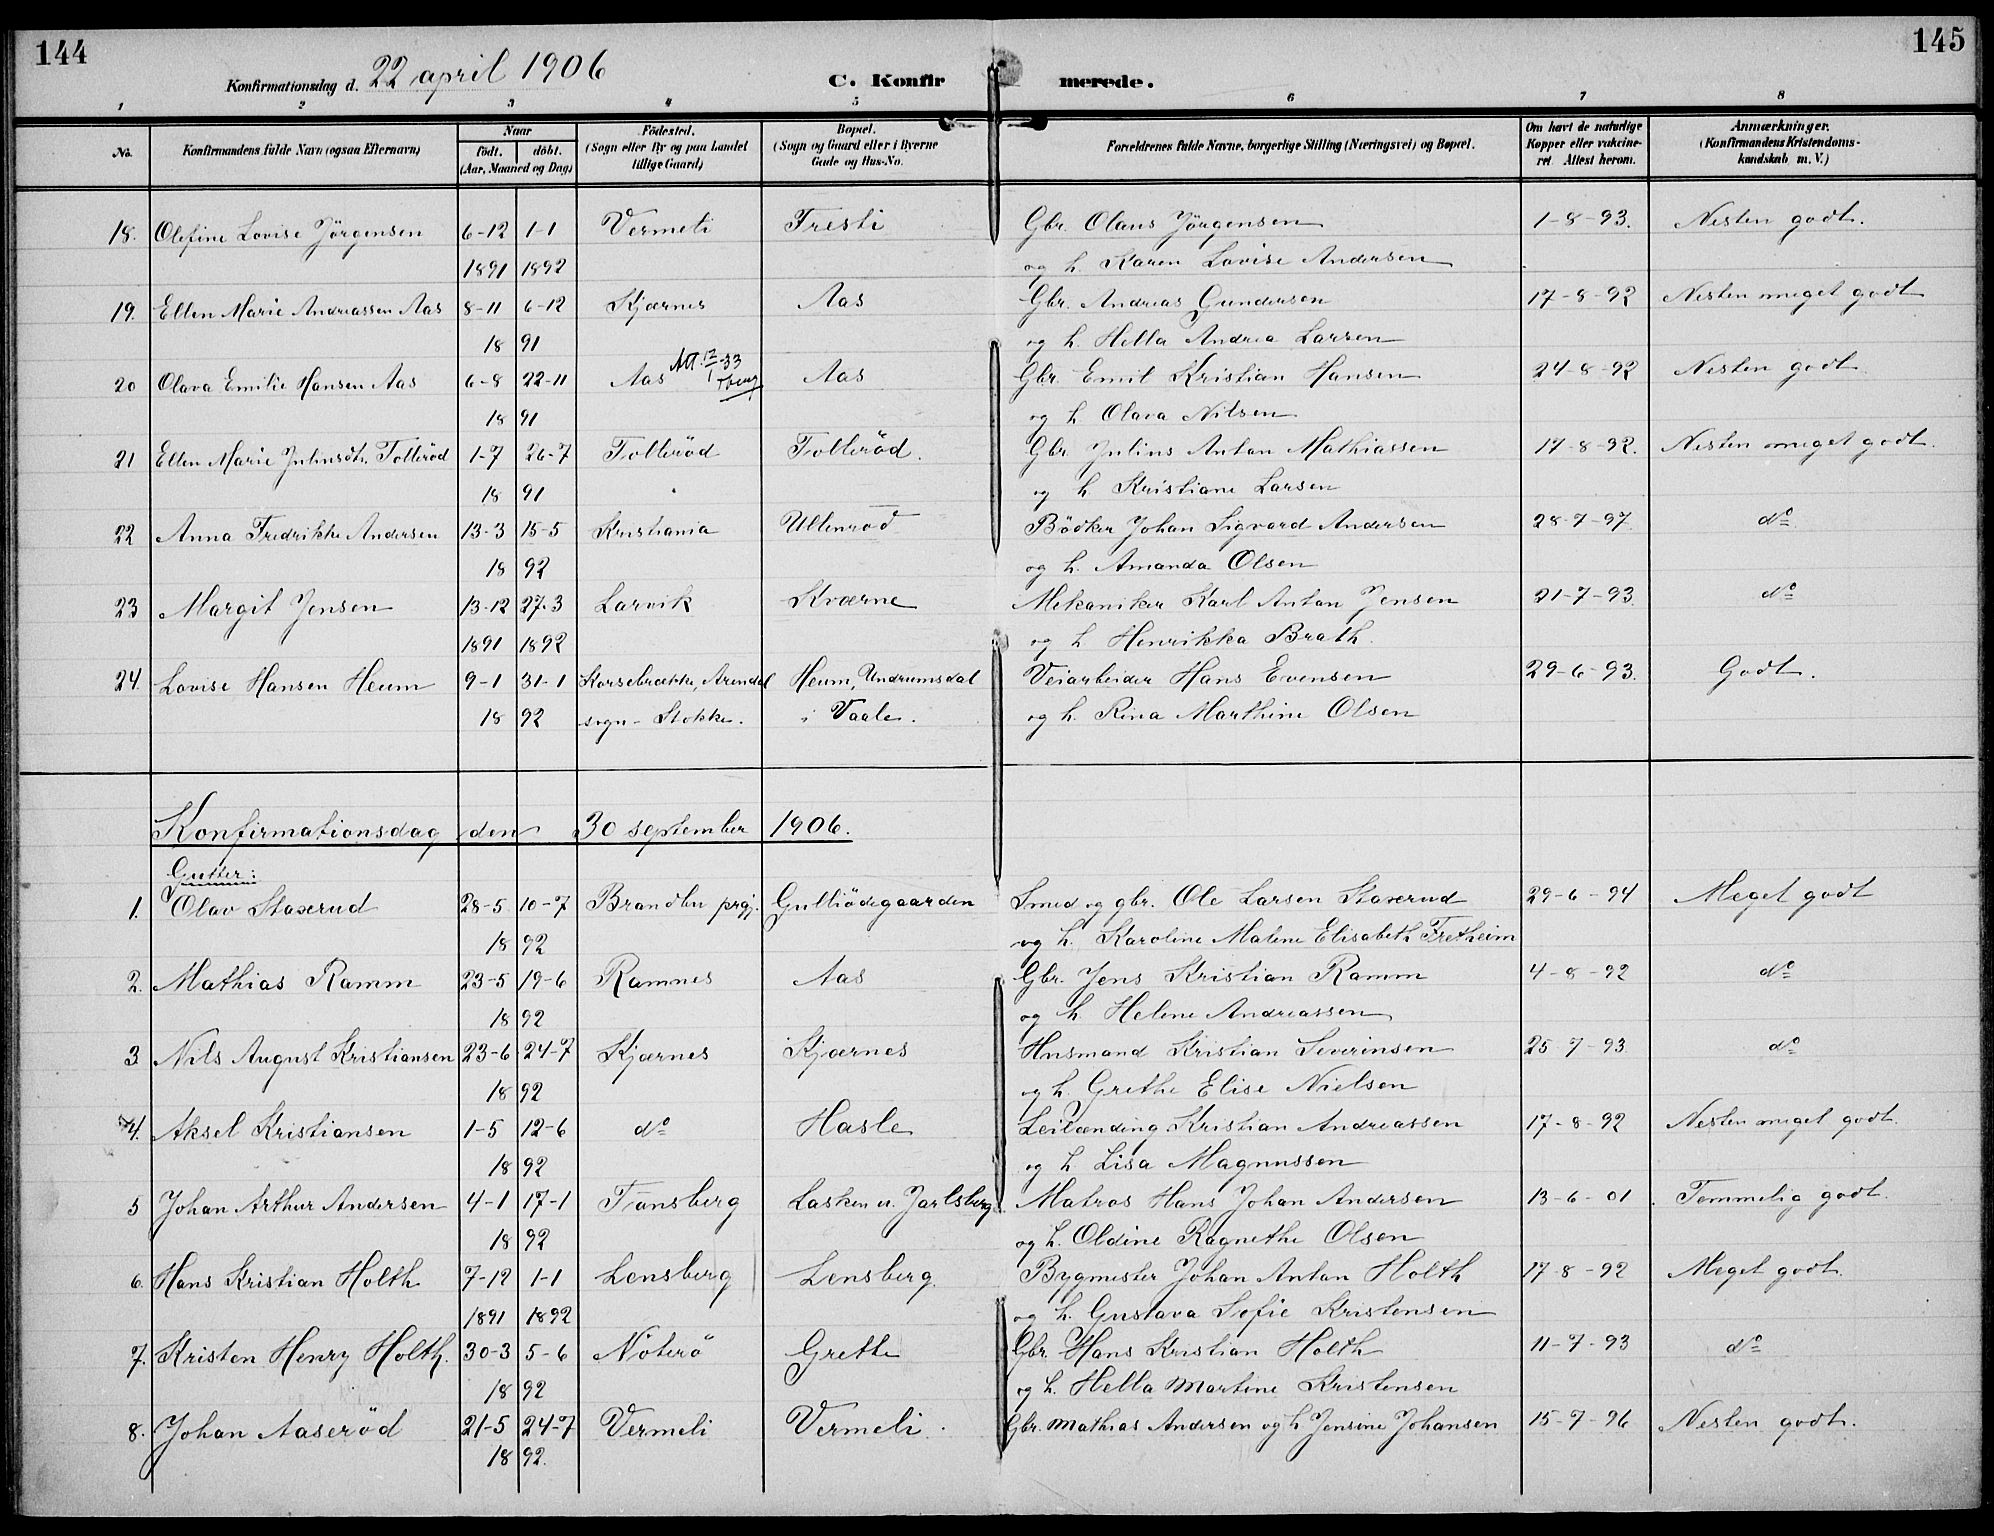 144
145
Konfirmationsdag d. 22 april 1906
C. Konfirmerede.
1 2 3 4 5 6 7 8
No. Konfirmandens fulde Navn (ogsaa Efternavn) Naar født. døbt. (Aar, Maaned og Dag) Fødested. (Sogn eller By og paa Landet tillige Gaard) Bopæl. (Sogn og Gaard eller i Byerne Gade og Hus-No. Forældrenes fulde Navne, borgerlige Stilling (Næringsvei) og Bopæl. Om havt de naturlige Kopper eller vakcineret. Attest herom. Anmærkninger. (Konfirmandens Kristendomskundskab m. V.)
18. Olefine Lovise Jörgensen 6-12 1-1 Vermeli Tresti Gbr. Olaus Jörgensen 1-8-93. Nesten godt.
1891 1892 og h. Karen Lovise Andersen
19. Ellen Marie Andreassen Aas 8-11 6-12 Kjærnes Aas Gbr. Andreas Gundersen 17-8-92 Nesten meget godt
18 91 og h. Hella Andrea Larsen
20 Olava Emilie Hansen Aas 6-8 22-11 Aas Att. 12/1-33 Aas Gbr. Emil Kristian Hansen 24-8-92 Nesten godt
18 91 og h. Olava Nilsen
21 Ellen Marie Juliusdtr. Tolleröd 1-7 26-7 Tolleröd Tolleröd. Gbr. Julius Anton Mathiassen 17-8-92. Nesten meget godt.
18 91 og h Kristiane Larsen
22 Anna Fredrikke Andersen 13-3 15-5 Kristiania Ullenröd Bödker Johan Sigvard Andersen 28-7-97. do
18 92 og h. Amanda Olsen
23 Margit Jensen 13-12 27-3 Larvik Kværne Mekaniker Karl Anton Jensen 21-7-93. do
1891 1892 og h Henrikka Brath.
24. Lovise Hansen Heum 9-1 31-1 Korsebrække, Arendal Heum, Undrumsdal Veiarbeider Hans Evensen 29-6-93. Godt.
18 92 sogn - Stokke. i Vaale. og h. Rina Marthine Olsen
Konfirmationsdag den 30 september 1906.
Gutter:
1. Olav Staxerud 28-5 10-7 Brandbu prgj. Gulliödegaarden Smed og gbr. Ole Larsen Staxerud 29-6-94 Meget godt
18 92 og h. Karoline Malene Elisabeth Fretheim
2. Mathias Ramm 23-5 19-6 Ramnes Aas Gbr. Jens Kristian Ramm 4-8-92 do
18 92 og h. Helene Andreassen
3. Nils August Kristiansen 23-6 24-7 Kjærnes Kjærnes Husmand Kristian Severinsen 25-7-93 do
18 92 og h. Grethe Elise Nielsen
4. Aksel Kristiansen 1-5 12-6 do Hasle Leilænding Kristian Andreassen 17-8-92 Nesten meget godt.
18 92 og h. Lisa Magnussen
5 Johan Arthur Andersen 4-1 17-1 Tönsberg Lasken u. Jarlsberg. Matros Hans Johan Andersen 13-6-01. Temmelig godt.
18 92 og h. Oldine Ragnethe Olsen
6. Hans Kristian Holth 7-12 1-1 Lensberg Lensberg. Bygmester Johan Anton Holth 17-8-92 Meget godt.
1891 1892 og h. Gustava Sofie Kristensen
7. Kristen Henry Holth. 30-3 5-6 Nöterö Grette Gbr. Hans Kristian Holth 11-7-93 do
18 92 og h. Hella Martine Kristensen
8. Johan Aaseröd 21-5 24-7 Vermeli Vermeli. Gbr. Mathias Andersen og h Jensine Johansen 15-7-96 Nesten godt.
18 92.